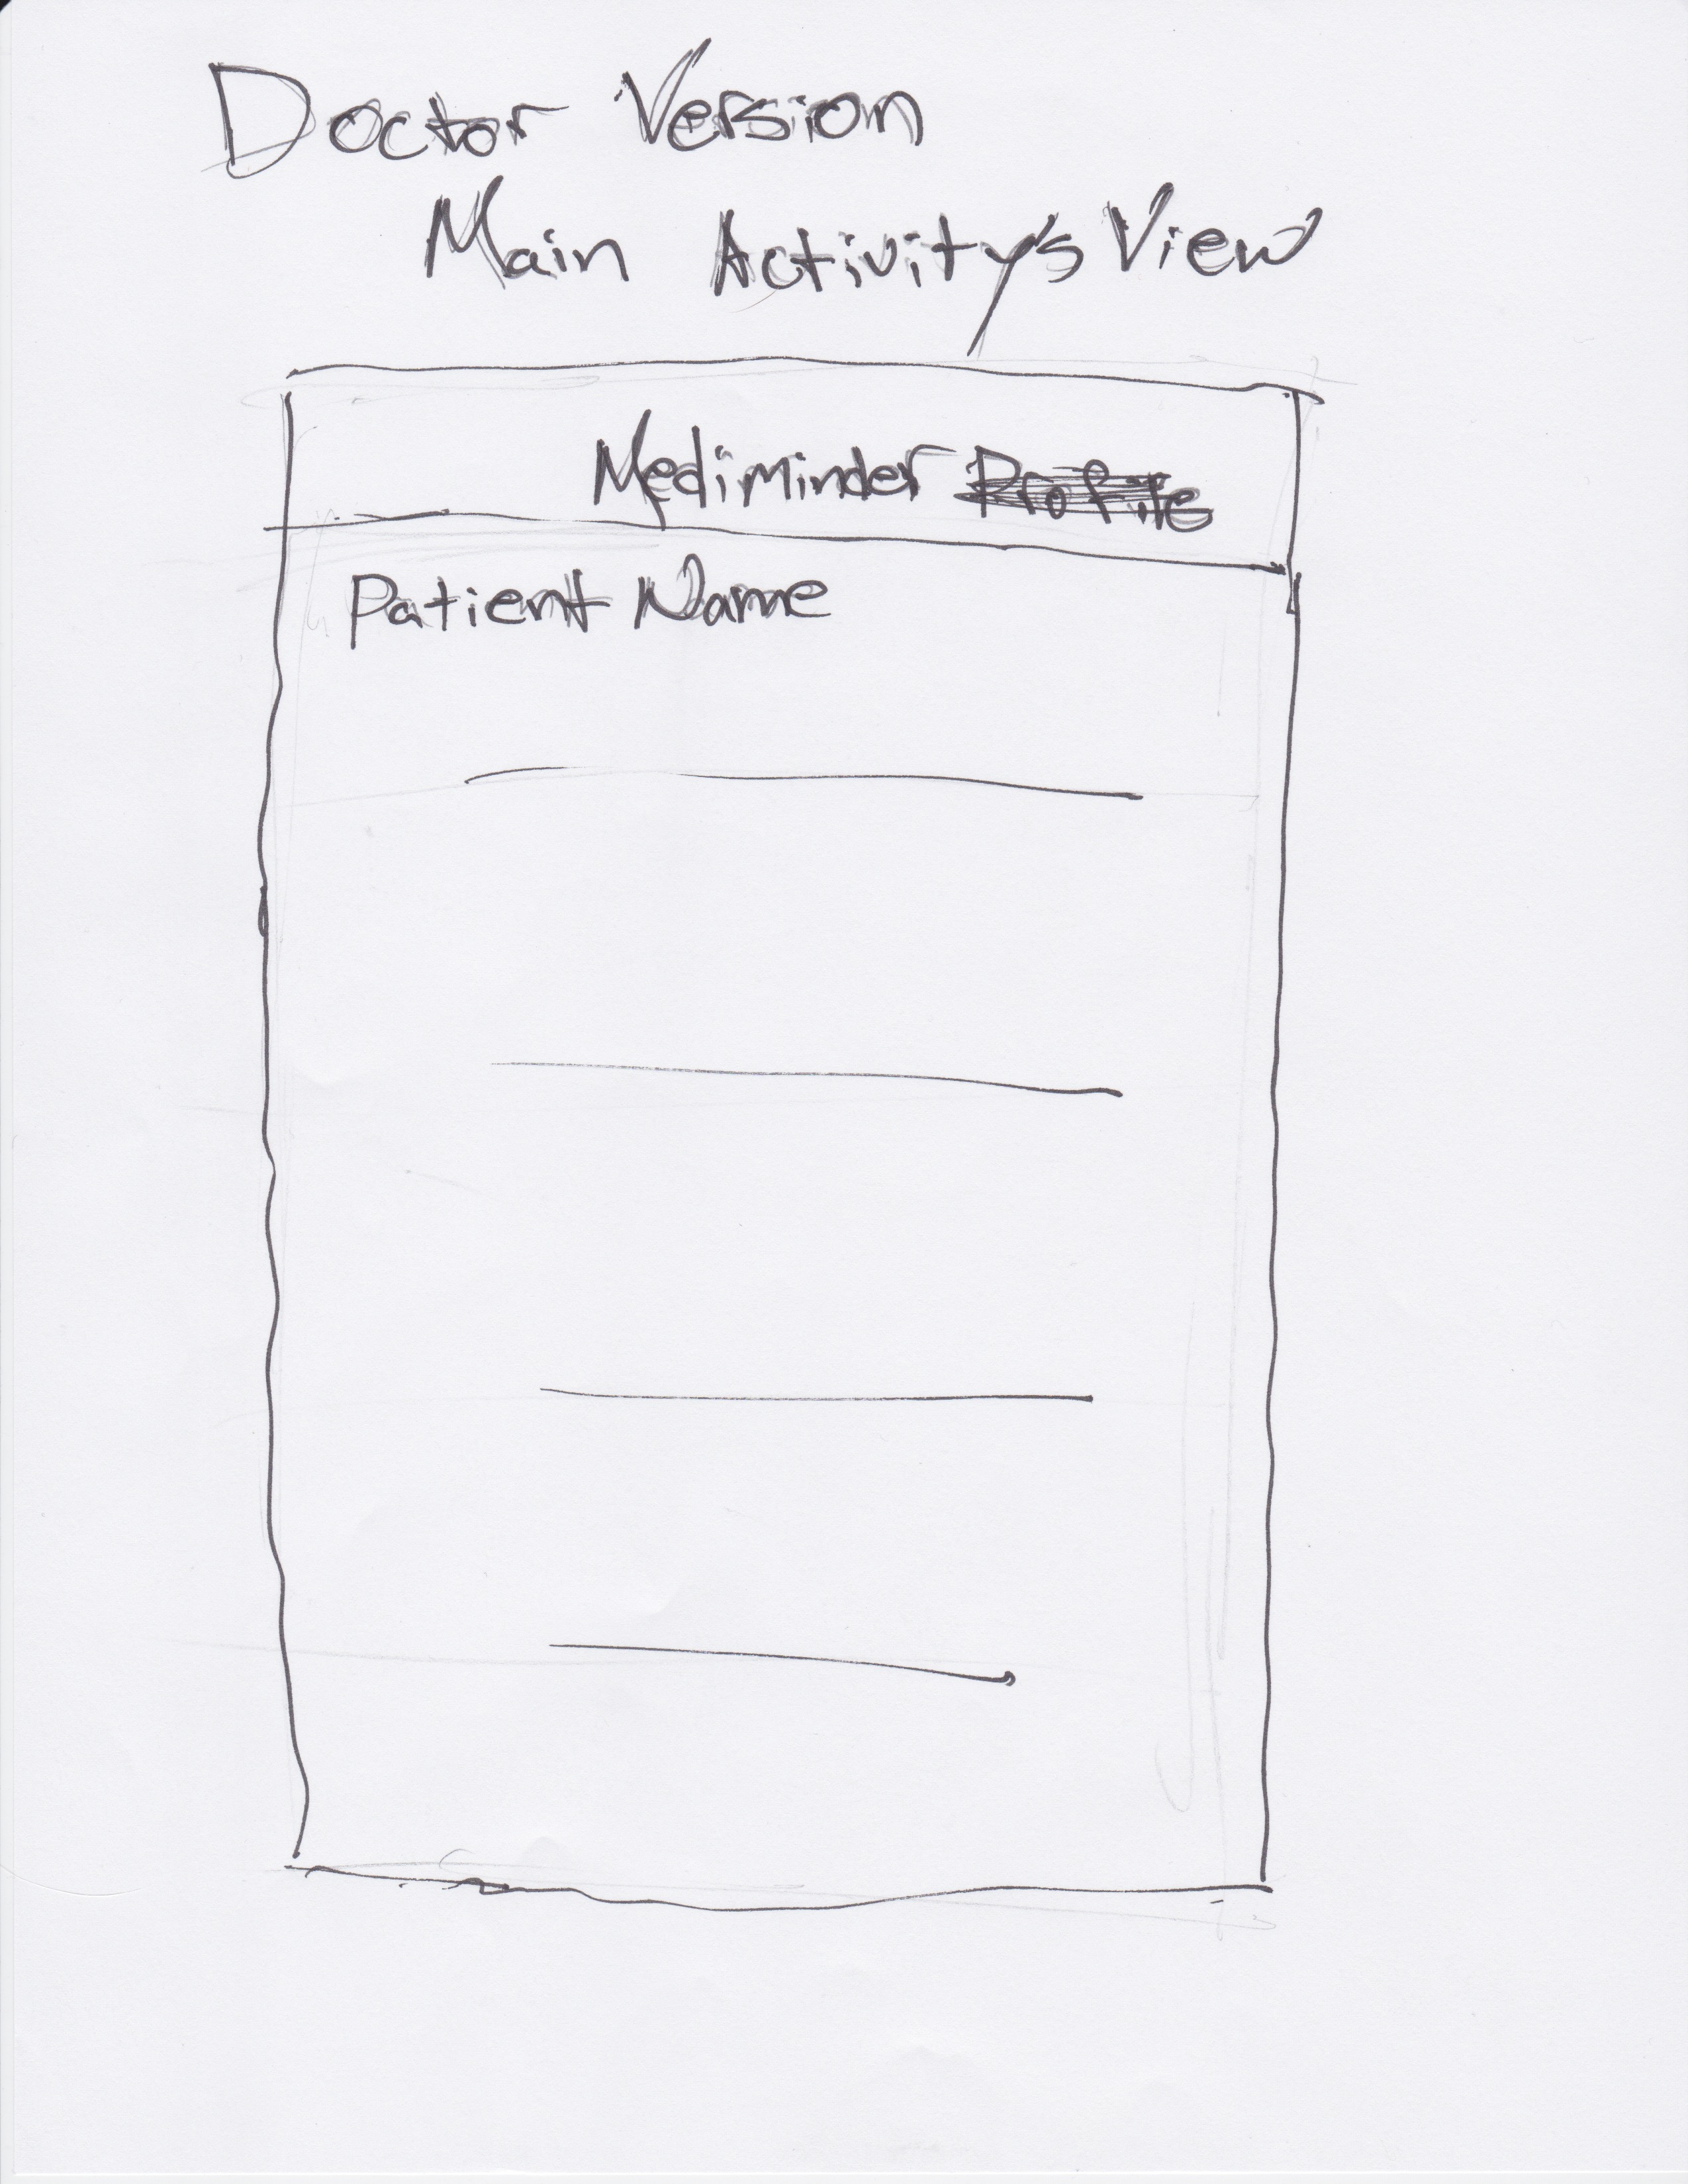 Doctor Version
Main Activity's View
Mediminder Profile
Patient Name